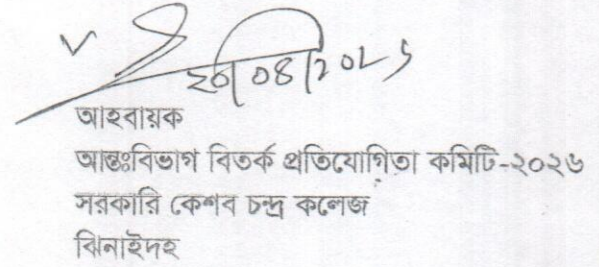 ২০/০৪/২০২৬
আহবায়ক
আন্তঃবিভাগ বিতর্ক প্রতিযোগিতা কমিটি-২০২৬
সরকারি কেশব চন্দ্র কলেজ
ঝিনাইদহ